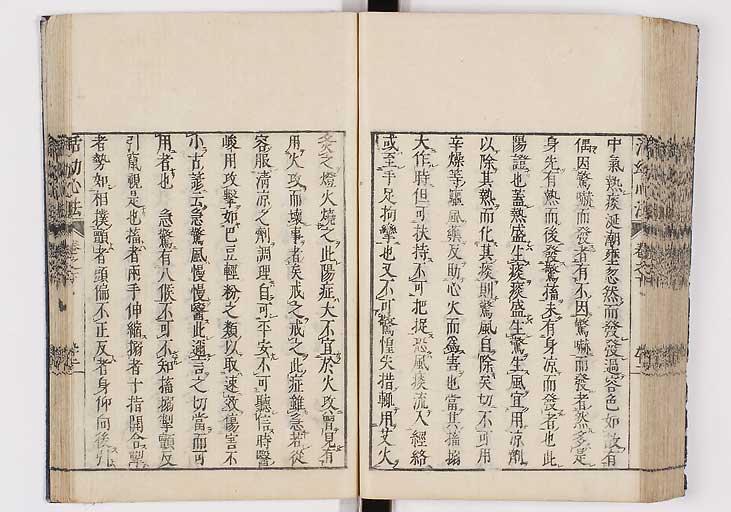 中氣熱痰涎潮壅忽然而發發過容色如故有
偶因驚嚇而發者有不因驚嚇而發者然多是
身先有熱而後發驚搐未有身凉而發者也此
陽證也蓋熱盛生痰痰盛生驚生風宜用凉劑
以除其熱而化其痰則驚風自除矣切不可用
辛燥等驅風藥反助心火而為害也當其搐搦
大作時但可扶持不可把捉恐風痰流入經絡
或至手足拘攣也又不可驚惶失措輒用艾火
灸之燈火燒之此陽症大不宜於火攻曾見有
用火攻而壞事者矣戒之戒之此症雖急若從
容服清凉之劑調理自可平安不可聽信時醫
峻用攻擊如巴豆輕粉之類以取速效傷害不
小古語云急驚風慢慢醫此適言之切當而可
用者也 急驚有八候不可不知搐搦掣顫反
引竄視是也搐者兩手伸縮搦者十指開合掣
者勢如相撲顫者頭偏不正反者身仰向後引
活幼心法